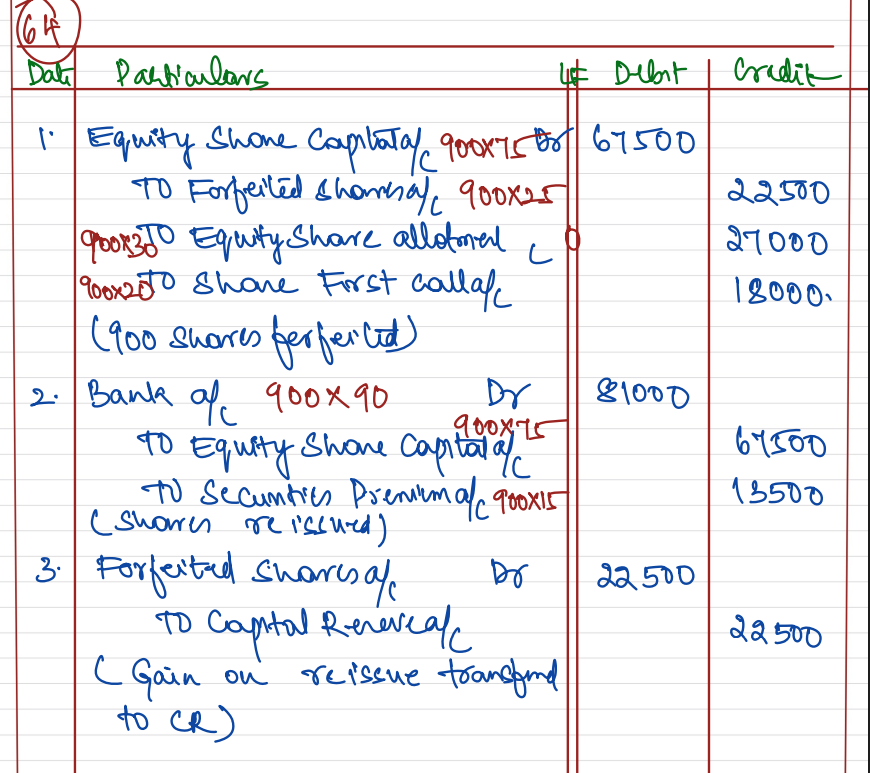 64
Date Particulars LF Debit Credit
1. Equity Share Capital a/c 900x75 Dr 67500
To Forfeited shares a/c 900x25 22500
900x30 To Equity Share allotment c 0 27000
900x20 To Share First call a/c 18000.
(900 shares forfeited)
2. Bank a/c 900x90 Dr 81000
To Equity Share Capital a/c 900x75 67500
To Securities Premium a/c 900x15 13500
(Shares reissued)
3. Forfeited shares a/c Dr 22500
To Capital Reserve a/c 22500
(Gain on reissue transfrd
to CR)